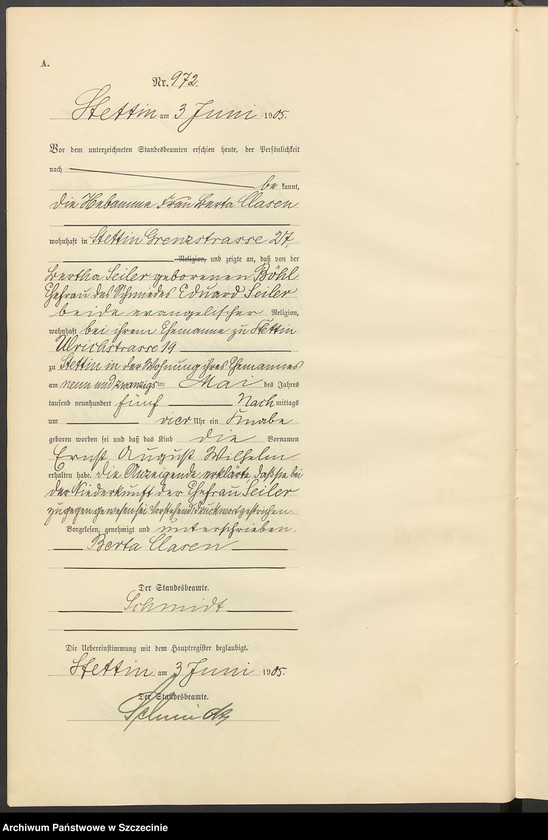 A.
Nr. 972
Stettin am 3 Juni 1905.
Vor dem unterzeichneten Standesbeamten erschien heute, der Persönlichkeit
nach
be kannt,
die Hebamme Frau Berta Clasen
wohnhaft in Stettin Grenzstrasse 27,
Religion, und zeigte an, daß von der
Bertha Seiler geborenen Böhl
Ehefrau des Schmiedes Eduard Seiler
beide evangelischer Religion,
wohnhaft bei ihrem Ehemanne zu Stettin
Ulrichstrasse 19
zu Stettin in der Wohnung ihres Ehemannes
am neun und zwanzigsten Mai des Jahres
tausend neunhundert fünf Nach mittags
um vier Uhr ein Knabe
geboren worden sei und daß das Kind die Vornamen
Ernst August Wilhelm
erhalten habe. Die Anzeigende erklärte, daß sie bei
der Niederkunft der Ehefrau Seiler
zugegen gewesen sei. Vorstehend 1 Druckwort gestrichen.
Vorgelesen, genehmigt und unterschrieben.
Berta Clasen
Der Standesbeamte.
Schmidt
Die Uebereinstimmung mit dem Hauptregister beglaubigt.
Stettin am 3 Juni 1905.
Der Standesbeamte.
Schmidt
Archiwum Państwowe w Szczecinie